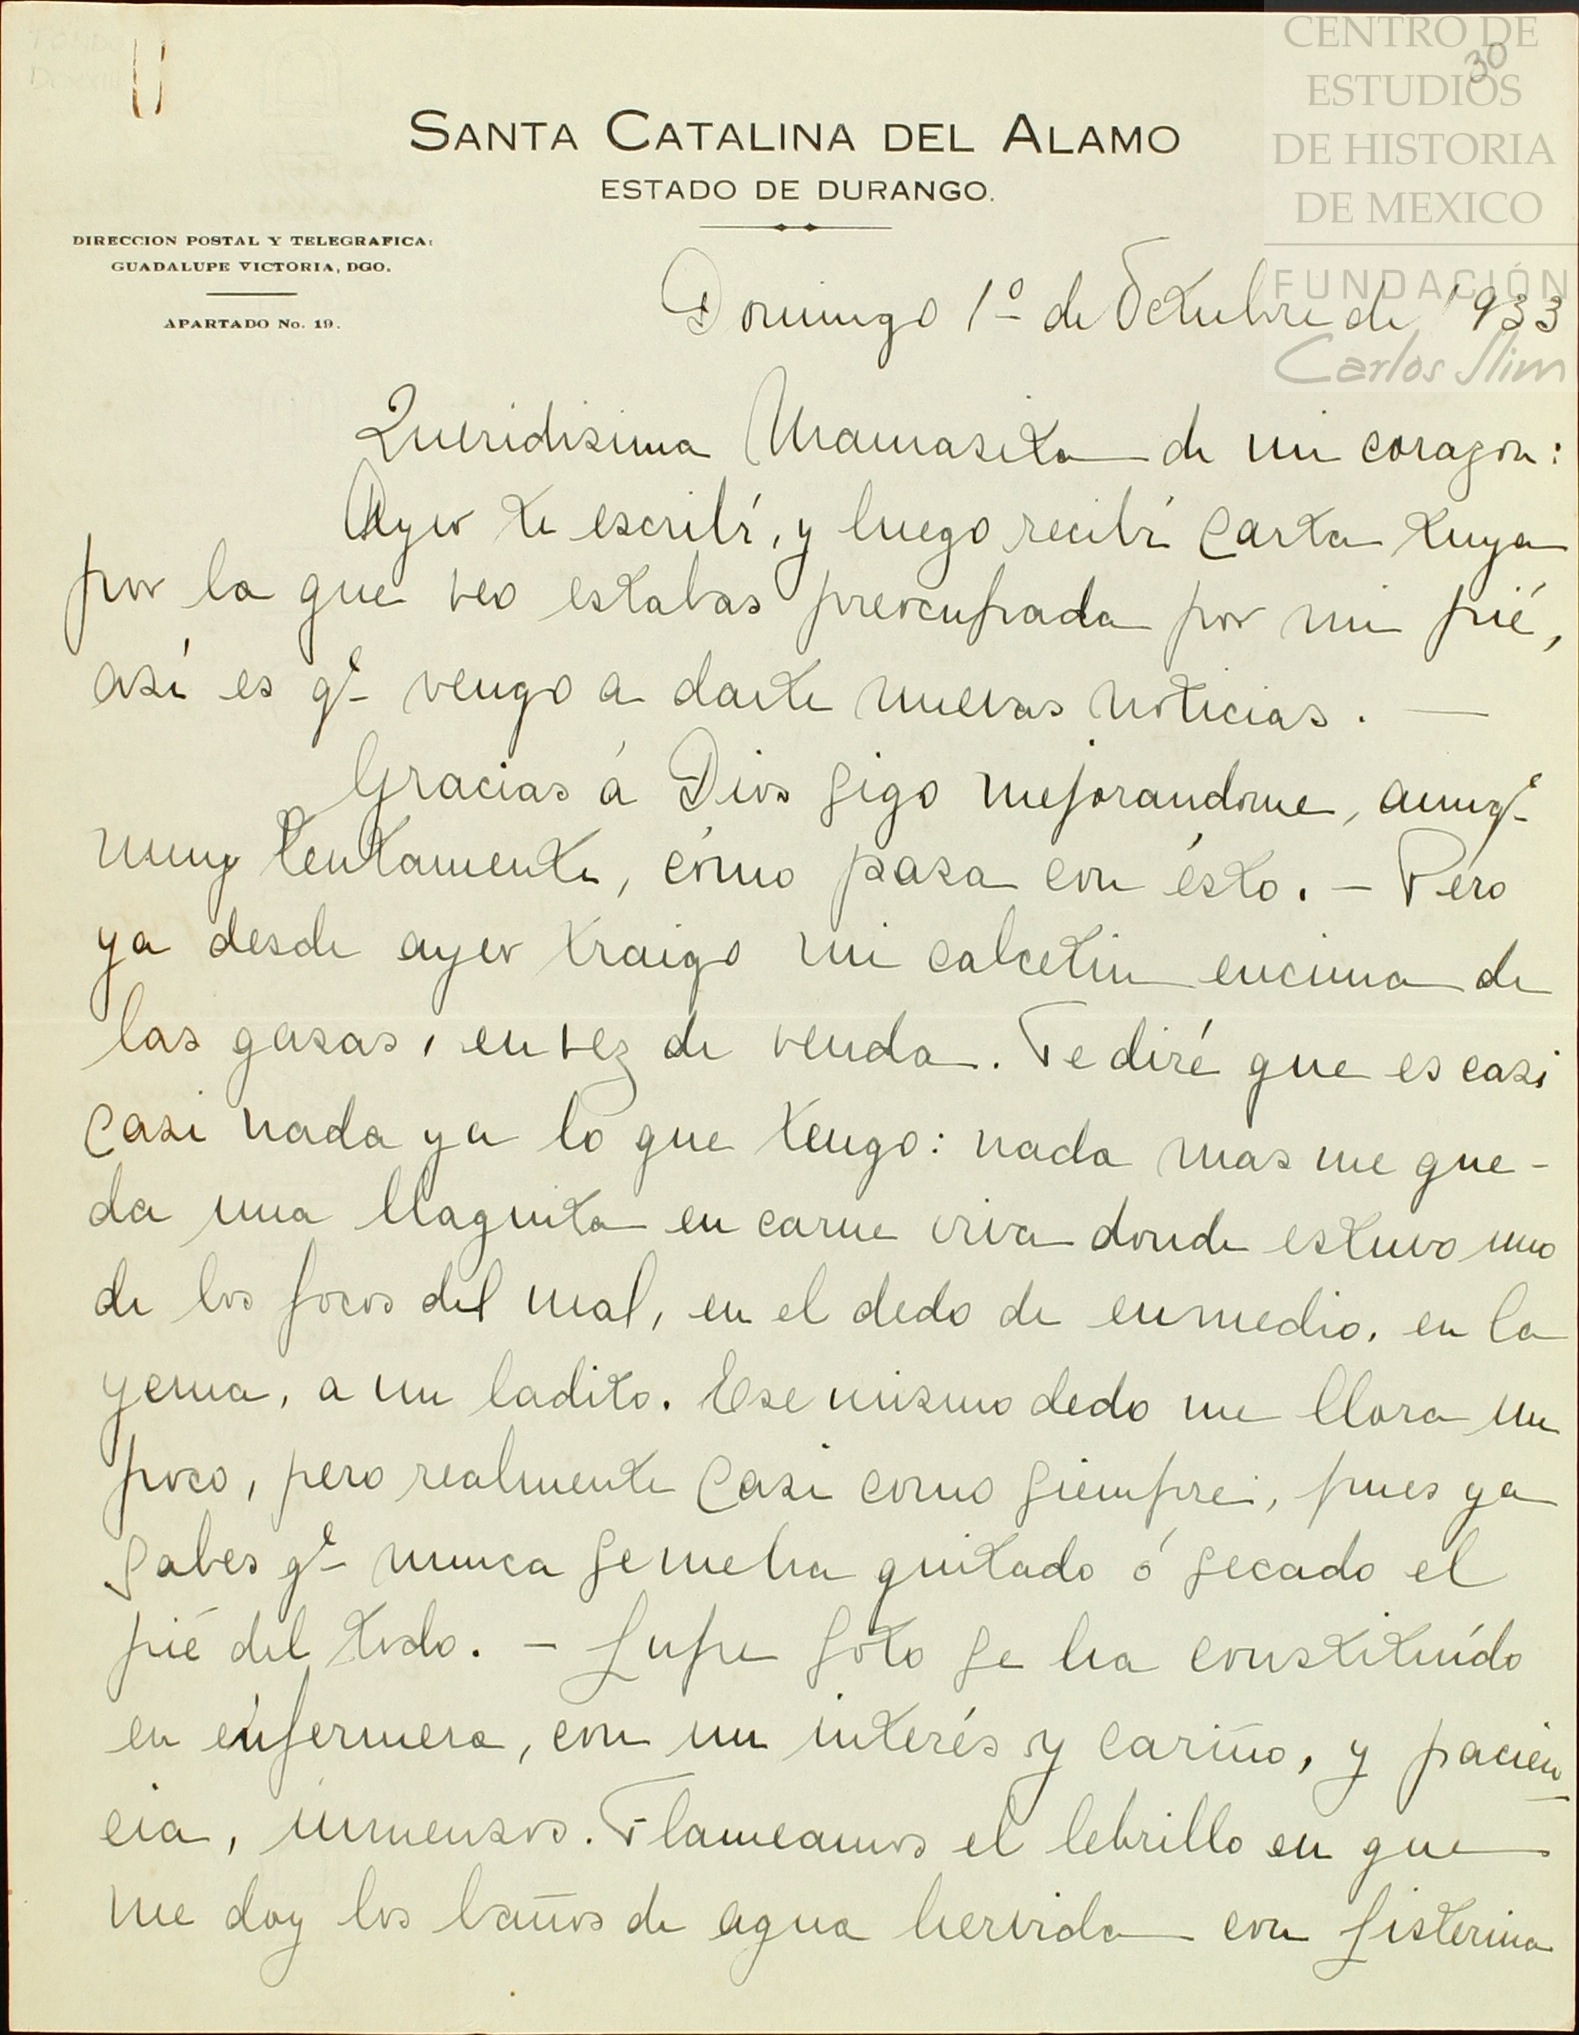 CENTRO DE
ESTUDIOS
DE HISTORIA
DE MEXICO
FUNDACIÓN
Carlos Slim
30
SANTA CATALINA DEL ALAMO
ESTADO DE DURANGO.
DIRECCION POSTAL Y TELEGRAFICA:
GUADALUPE VICTORIA, DGO.
APARTADO No. 19.
Domingo 1º de Octubre de 1933
Queridisima Mamasita de mi corazon:
Ayer te escribí, y luego recibí carta tuya
por la que veo estabas preocupada por mi pié,
así es qe vengo a darte nuevas noticias. —
Gracias á Dios sigo mejorandome, aunqe
muy lentamente, cómo pasa con ésto. — Péro
ya desde ayer traigo mi calcetin encima de
las gasas, en vez de venda. Te diré que es casi
casi nada ya lo que tengo: nada mas me que-
da una llaguita en carne viva donde estuvo uno
de los focos del mal, en el dedo de enmedio, en la
yema, a un ladito. Ese mismo dedo me llora un
poco, pero realmente casi como siempre, pues ya
sabes qe nunca se me ha quitado ó secado el
pié del todo. — Lupe Soto se ha constituído
en enfermera, con un interés y cariño, y pacien-
cia, inmensos. Flameamos el lebrillo en que
me doy los baños de agua hervida con Listerina